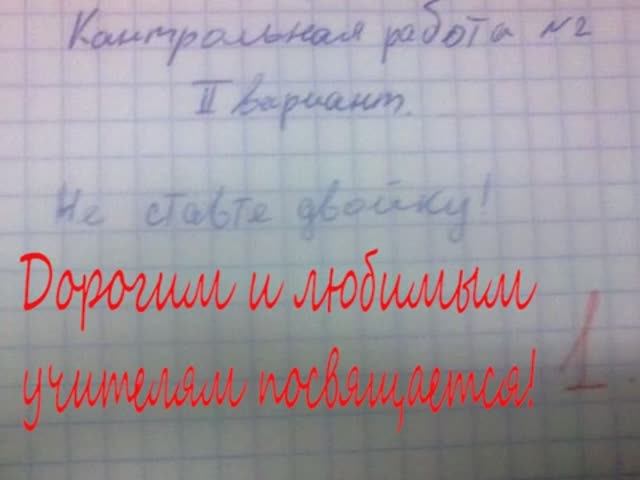 Кантрольная работа №2
II вариант.
Не ставте двойку!
Дорогим и любимым
учителям посвящается! 1